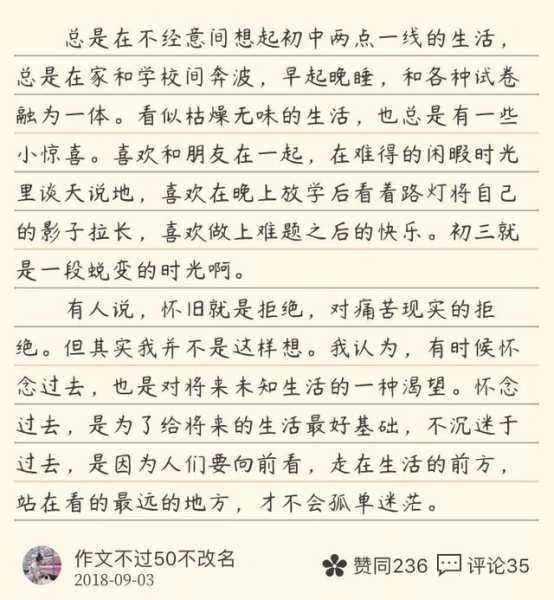 总是在不经意间想起初中两点一线的生活，
总是在家和学校间奔波，早起晚睡，和各种试卷
融为一体。看似枯燥无味的生活，也总是有一些
小惊喜。喜欢和朋友在一起，在难得的闲暇时光
里谈天说地，喜欢在晚上放学后看着路灯将自己
的影子拉长，喜欢做上难题之后的快乐。初三就
是一段蜕变的时光啊。
有人说，怀旧就是拒绝，对痛苦现实的拒
绝。但其实我并不是这样想。我认为，有时候怀
念过去，也是对将来未知生活的一种渴望。怀念
过去，是为了给将来的生活最好基础，不沉迷于
过去，是因为人们要向前看，走在生活的前方，
站在看的最远的地方，才不会孤单迷茫。
作文不过50不改名
2018-09-03
赞同236 评论35